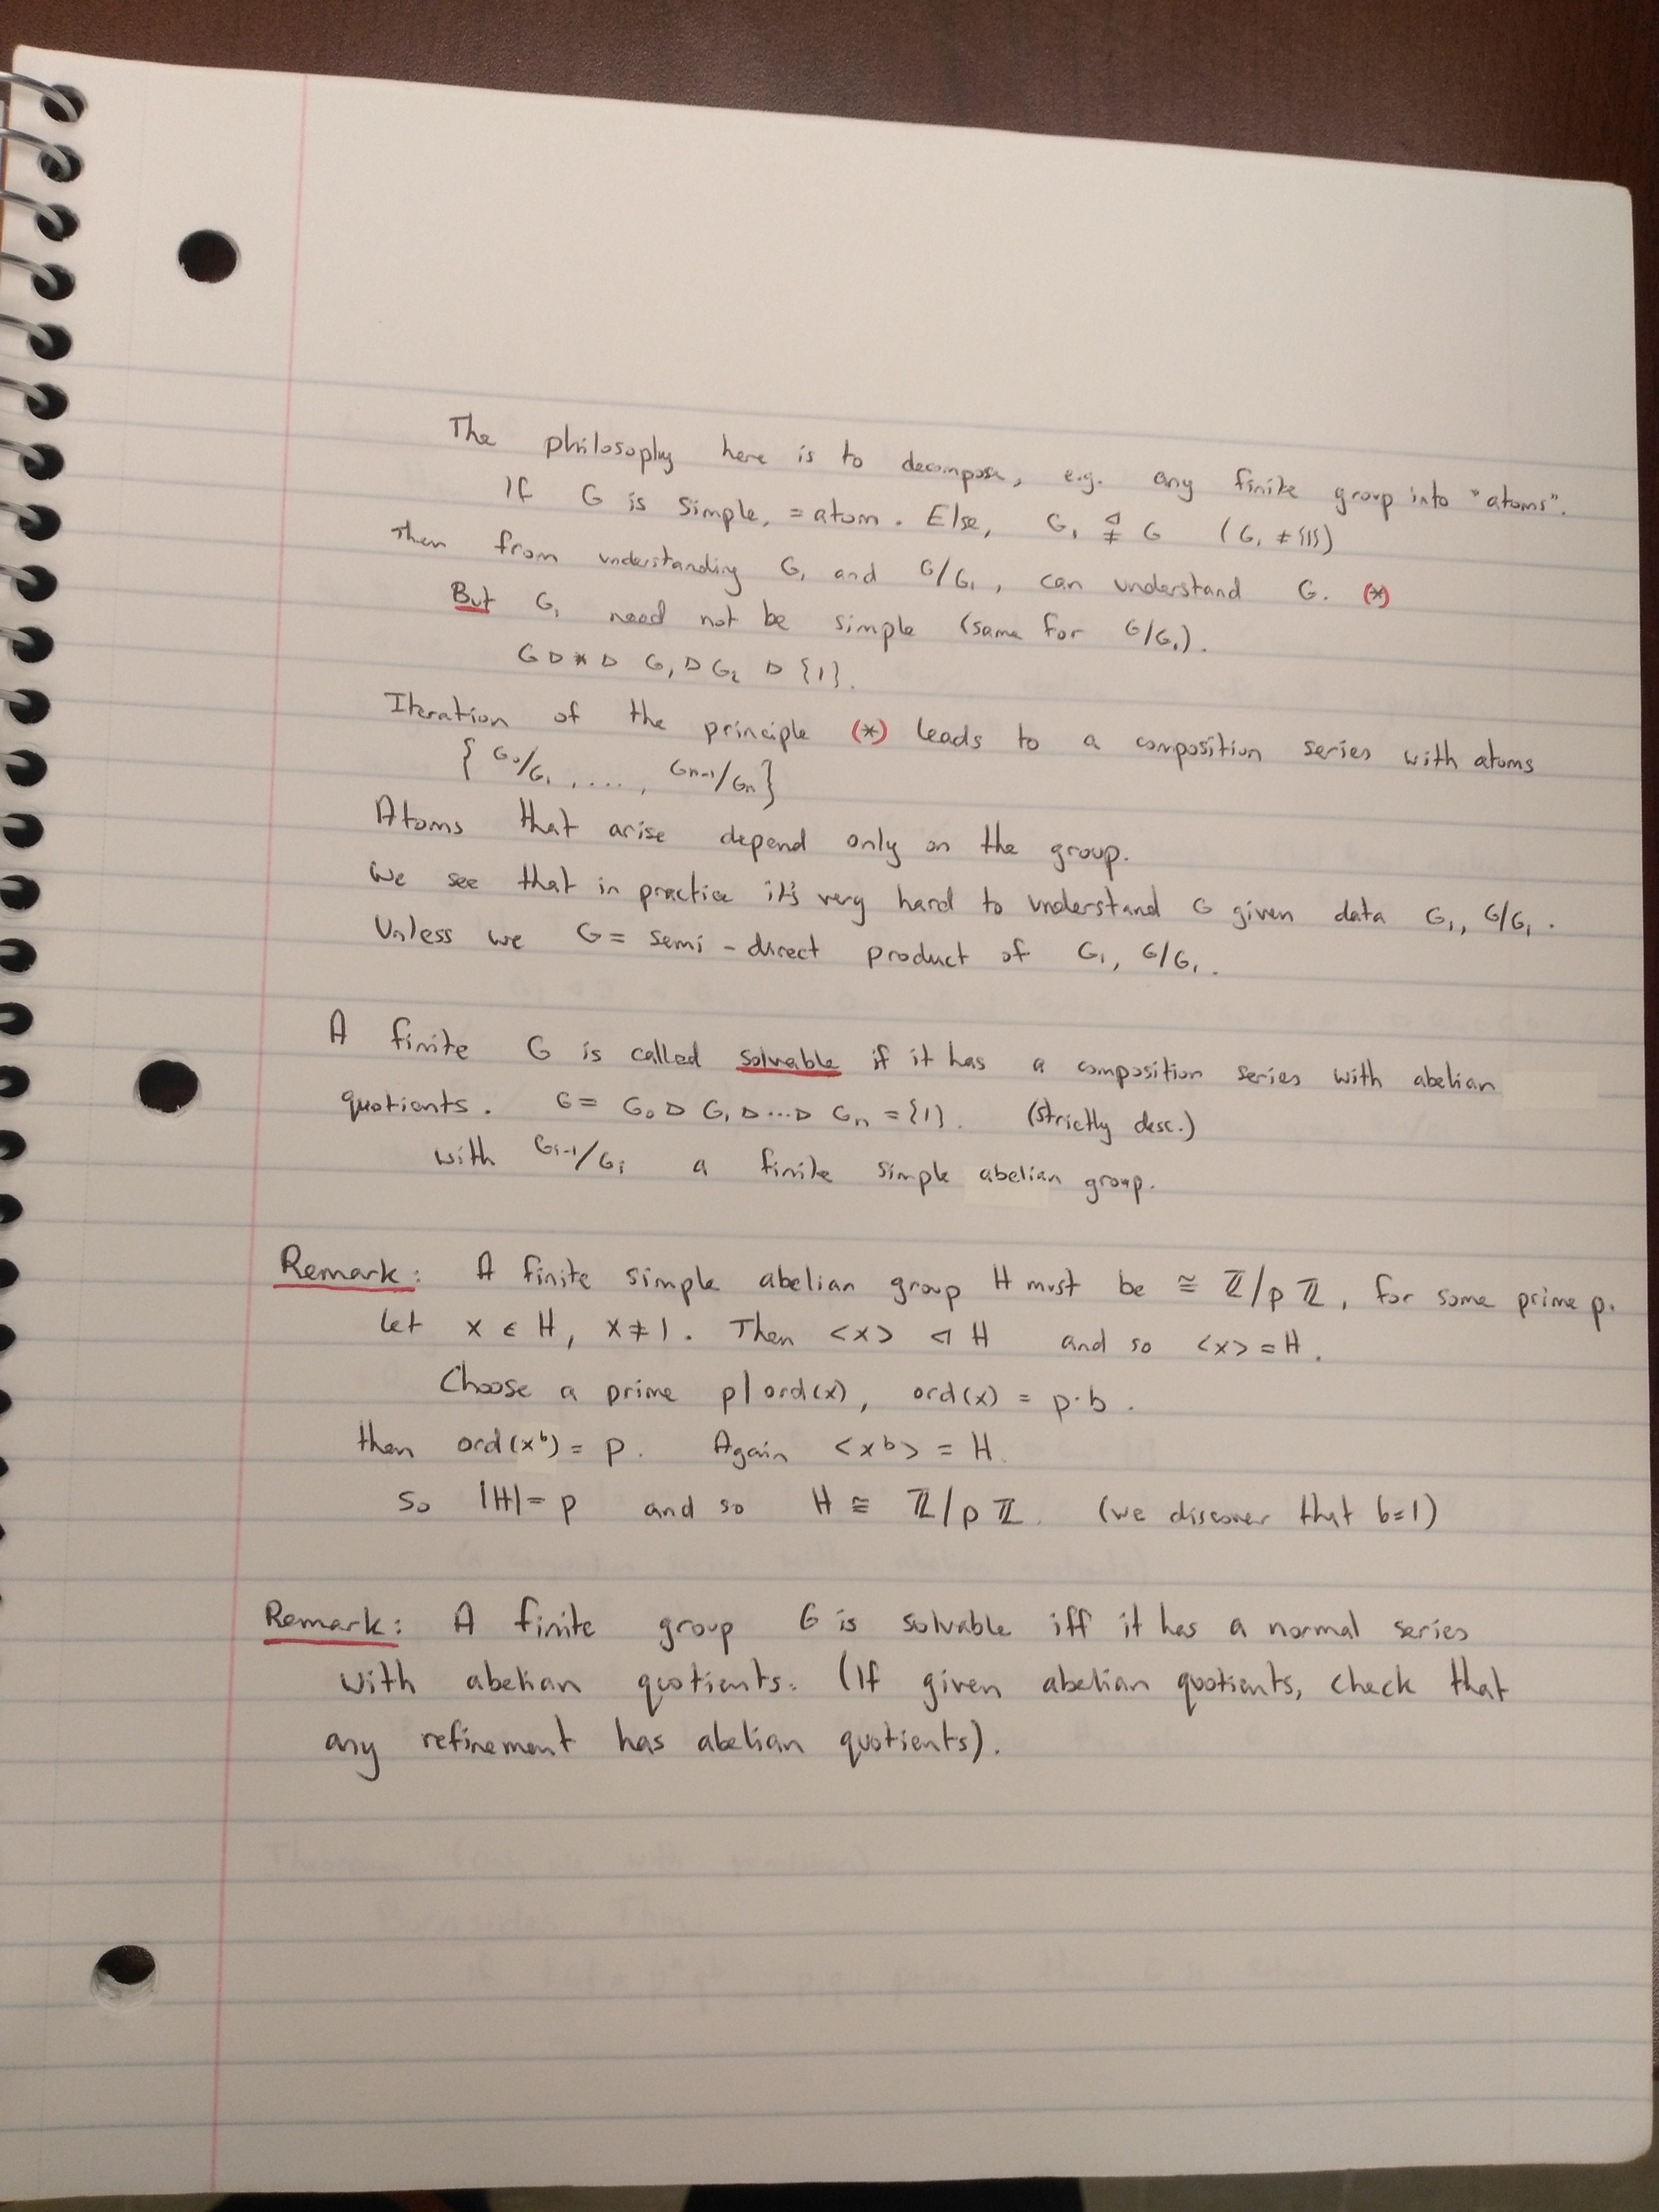 The philosophy here is to decompose, e.g. any finite group into "atoms".
If G is simple, = atom. Else, G₁ ⊲≠ G (G₁ ≠ {1})
Then from understanding G₁ and G/G₁, can understand G. (*)
But G₁ need not be simple (same for G/G₁).
G ▷ * ▷ G₁ ▷ G₂ ▷ {1}.
Iteration of the principle (*) leads to a composition series with atoms
{ G₀/G₁, ...., Gₙ₋₁/Gₙ }
Atoms that arise depend only on the group.
We see that in practice it's very hard to understand G given data G₁, G/G₁.
Unless we G = semi-direct product of G₁, G/G₁.
A finite G is called solvable if it has a composition series with abelian
quotients. G = G₀ ▷ G₁ ▷ ... ▷ Gₙ = {1}. (strictly desc.)
with Gᵢ₋₁/Gᵢ a finite simple abelian group.
Remark: A finite simple abelian group H must be ≅ ℤ/pℤ, for some prime p.
Let x ∈ H, x ≠ 1. Then <x> ⊲ H and so <x> = H.
Choose a prime p | ord(x), ord(x) = p·b.
then ord(xᵇ) = p. Again <xᵇ> = H.
So |H| = p and so H ≅ ℤ/pℤ. (we discover that b=1)
Remark: A finite group G is solvable iff it has a normal series
with abelian quotients. (If given abelian quotients, check that
any refinement has abelian quotients).